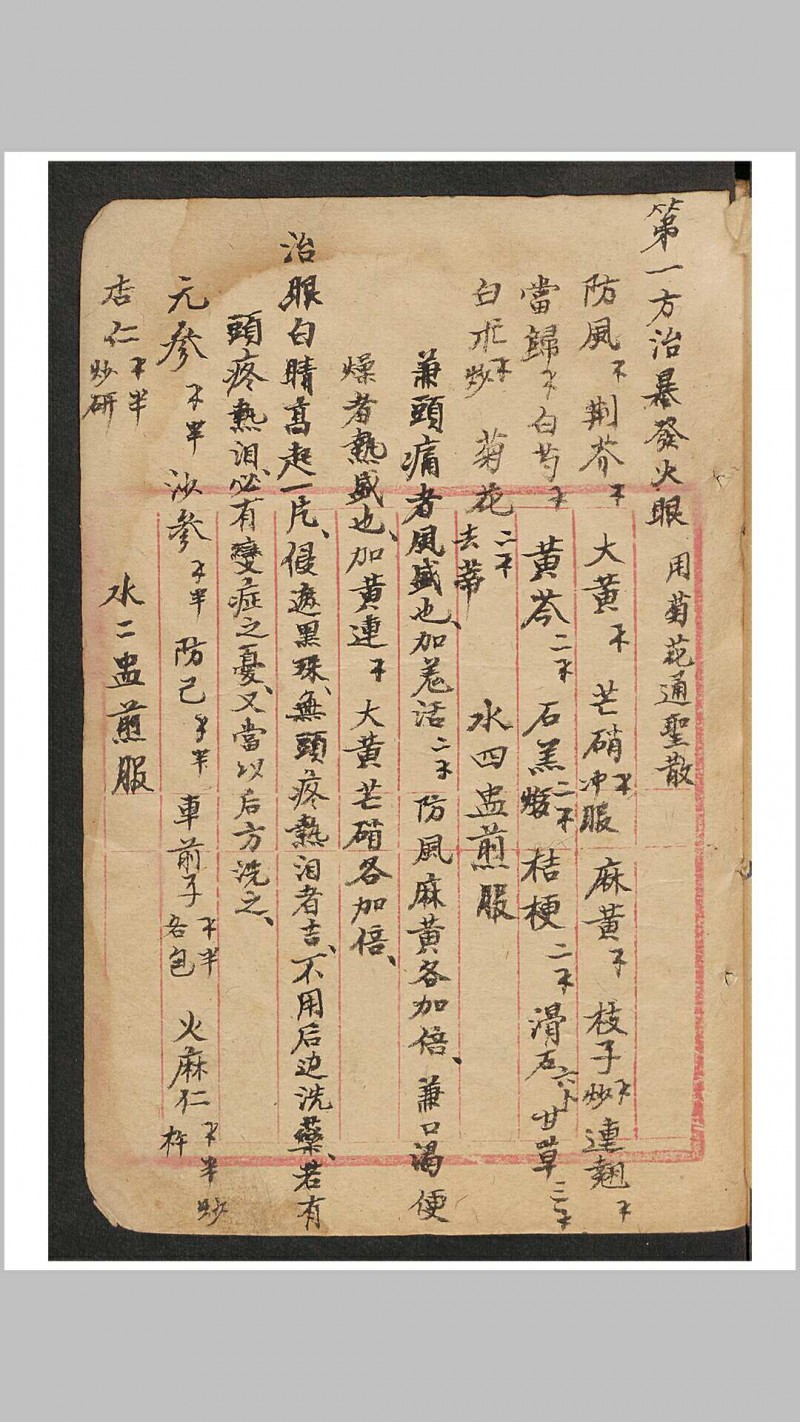 第一方治暴發火眼 用菊花通聖散
防風 荆芥 大黄 芒硝冲服 麻黄 枝子炒 連翹
當歸 白芍 黄芩二 石羔煅二 桔梗二 滑石六 甘草三
白朮炒 菊花二去蒂 水四盅煎服
兼頭痛者風盛也、加羗活二 防風麻黄各加倍、兼口渴便
燥者熱盛也、加黄連 大黄芒硝各加倍、
治眼白睛髙起一片、侵遮黑珠、無頭疼熱泪者吉、不用后边洗藥、若有
頭疼熱泪、必有變症之憂、又當以后方洗之、
元參半 沙參半 防己半 車前子半各包 火麻仁半炒杵
杏仁半炒研 水二盅煎服